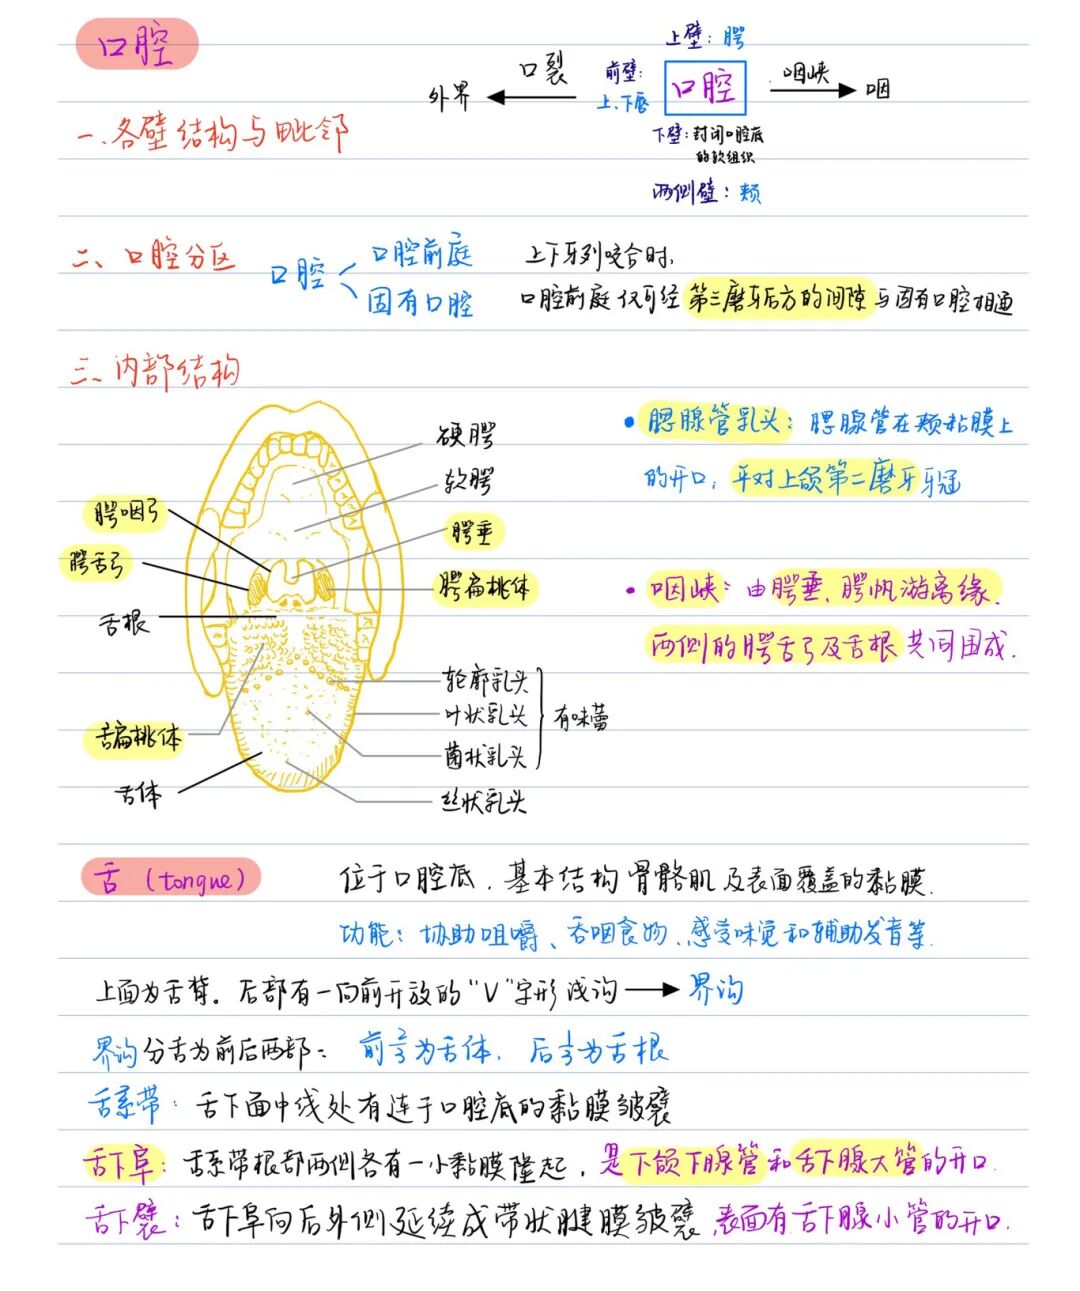 口腔
上壁：腭
外界 口裂 前壁：上、下唇 口腔 咽峡 咽
下壁：封闭口腔底
的软组织
两侧壁：颊
一、各壁结构与毗邻
二、口腔分区
口腔
口腔前庭
固有口腔
上下牙列咬合时，
口腔前庭仅可经第三磨牙后方的间隙与固有口腔相通
三、内部结构
硬腭
软腭
腭垂
腭扁桃体
腭咽弓
腭舌弓
舌根
轮廓乳头
叶状乳头
有味蕾
菌状乳头
丝状乳头
舌扁桃体
舌体
• 腮腺管乳头：腮腺管在颊粘膜上
的开口，平对上颌第二磨牙牙冠
• 咽峡：由腭垂、腭帆游离缘、
两侧的腭舌弓及舌根共同围成.
舌（tongue）
位于口腔底，基本结构骨骼肌及表面覆盖的黏膜.
功能：协助咀嚼、吞咽食物、感受味觉和辅助发音等.
上面为舌背。后部有一向前开放的“V”字形浅沟→界沟
界沟分舌为前后两部：前2/3为舌体，后1/3为舌根
舌系带：舌下面中线处有连于口腔底的黏膜皱襞
舌下阜：舌系带根部两侧各有一小黏膜隆起，是下颌下腺管和舌下腺大管的开口.
舌下襞：舌下阜向后外侧延续成带状黏膜皱襞，表面有舌下腺小管的开口.